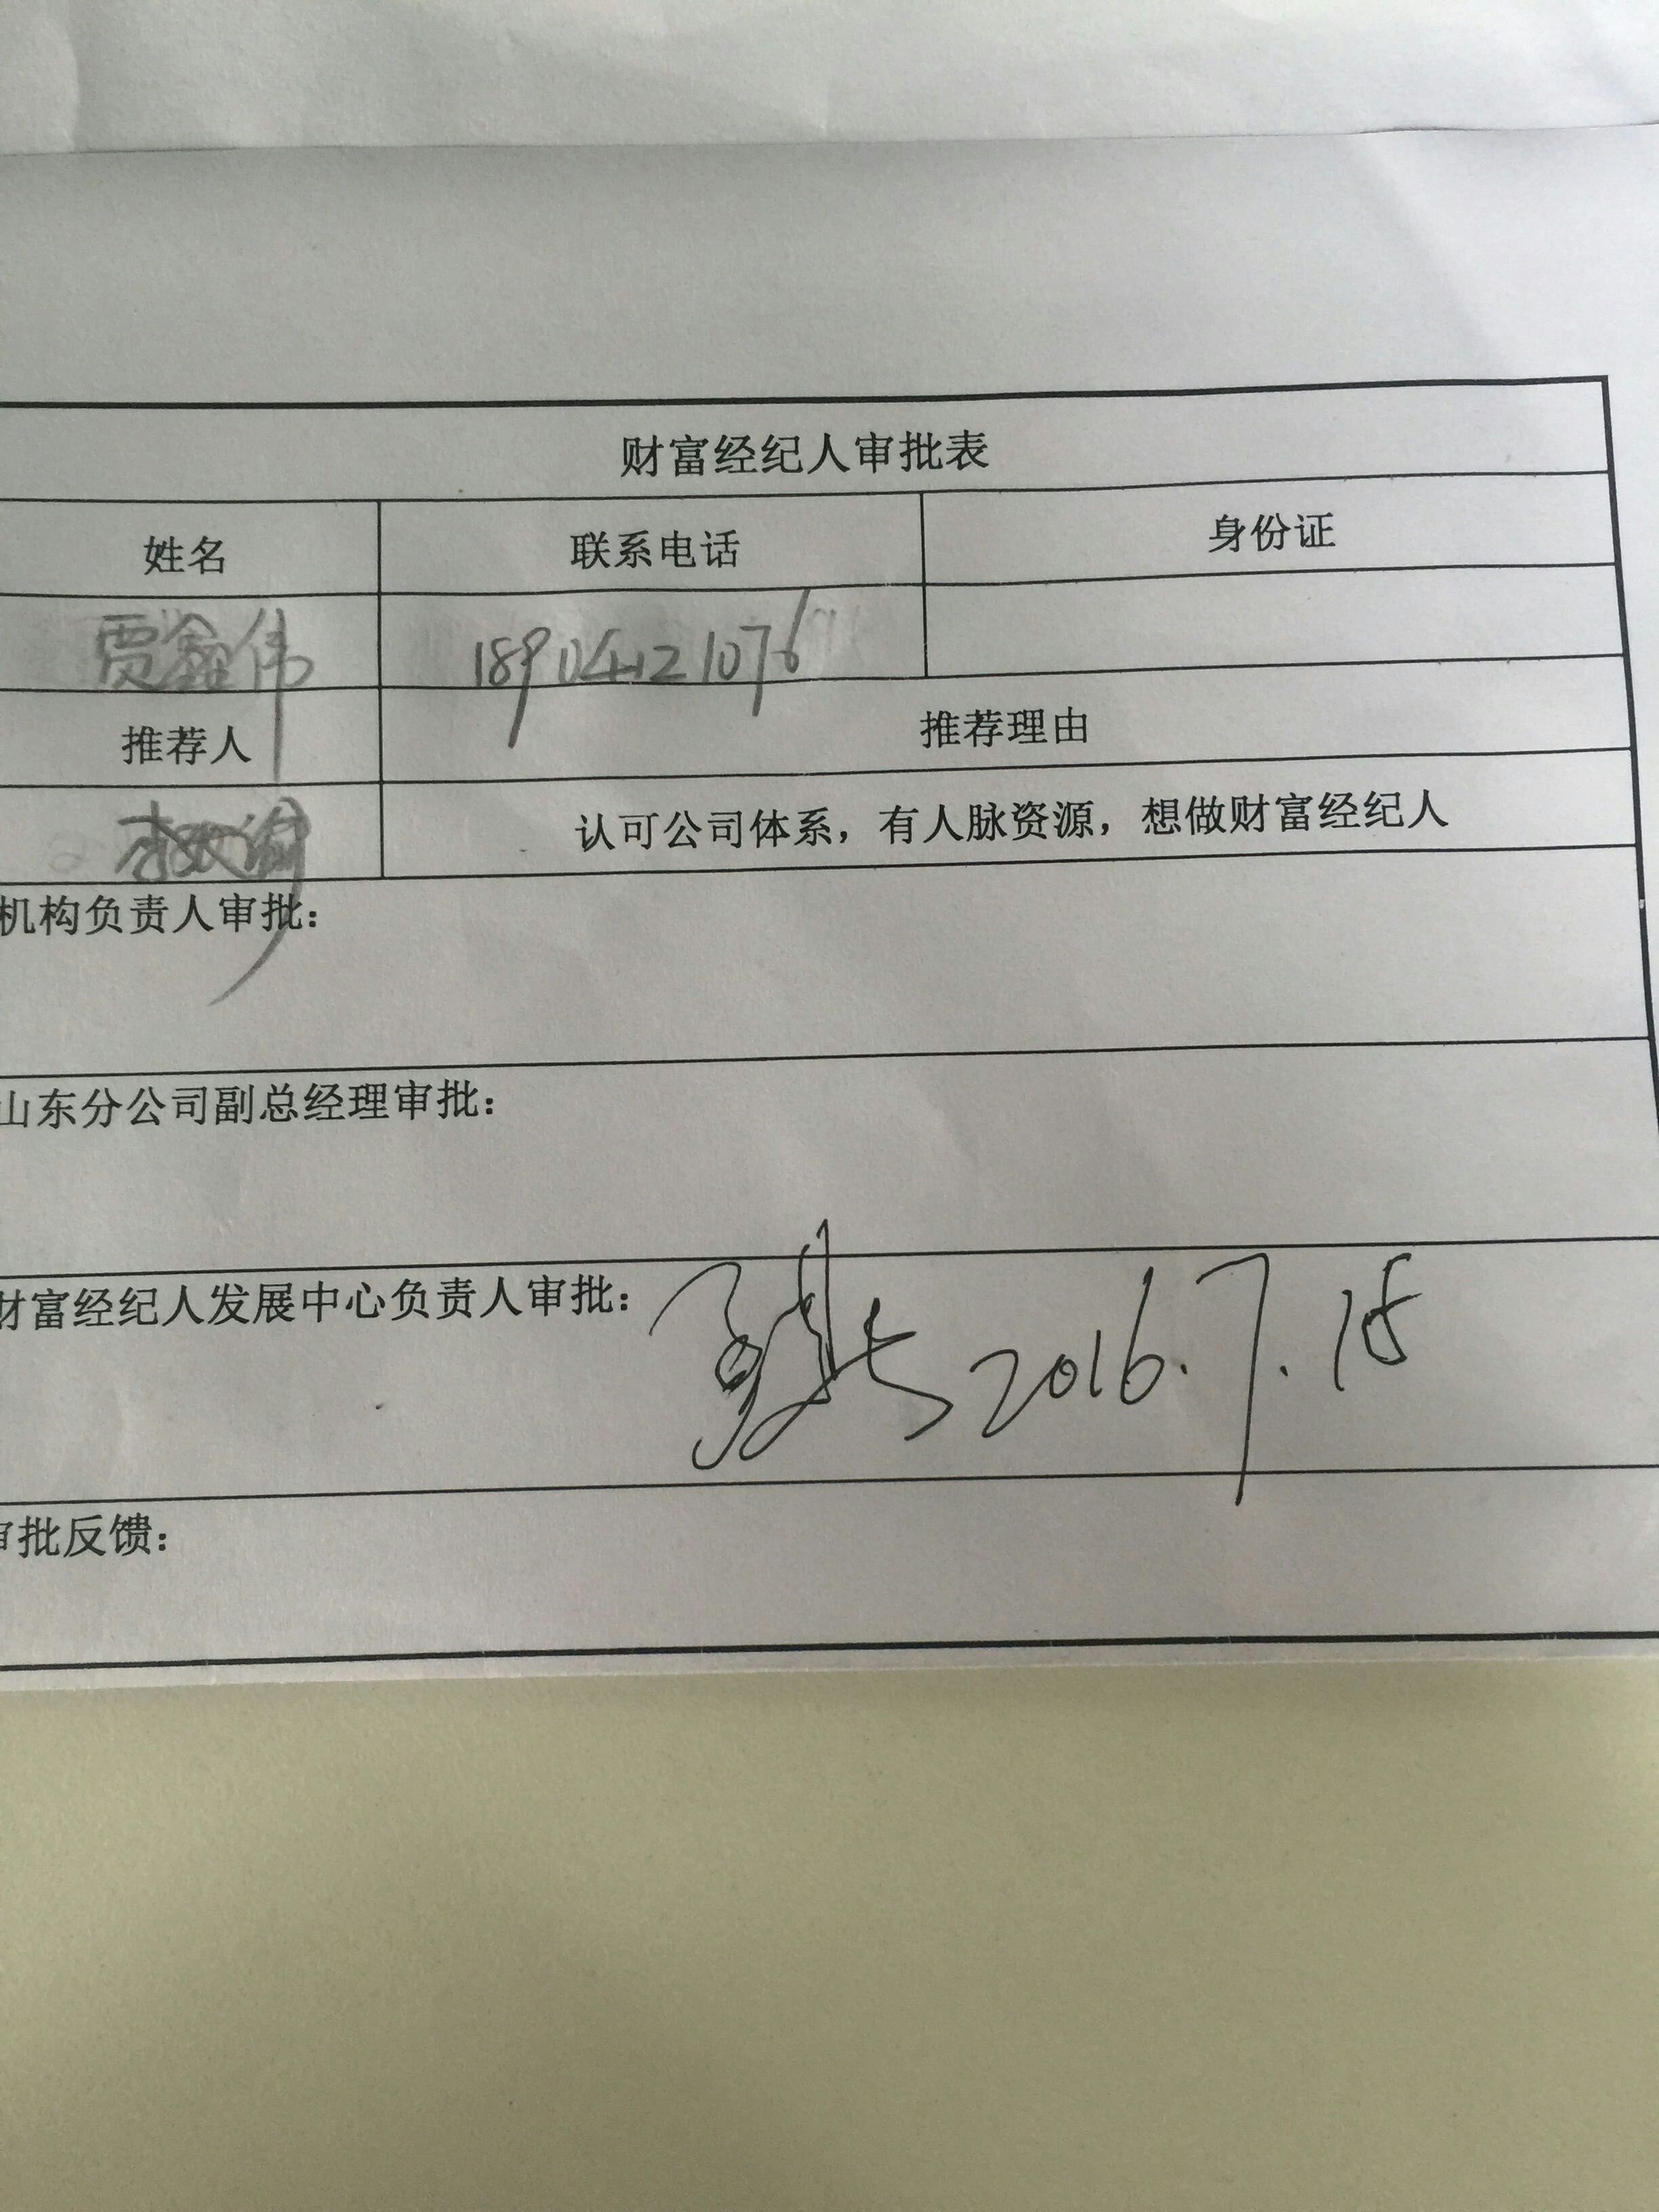 财富经纪人审批表
姓名 联系电话 身份证
贾鑫伟 18904121076
推荐人 推荐理由
认可公司体系，有人脉资源，想做财富经纪人
机构负责人审批：
山东分公司副总经理审批：
财富经纪人发展中心负责人审批： 2016.7.18
审批反馈：